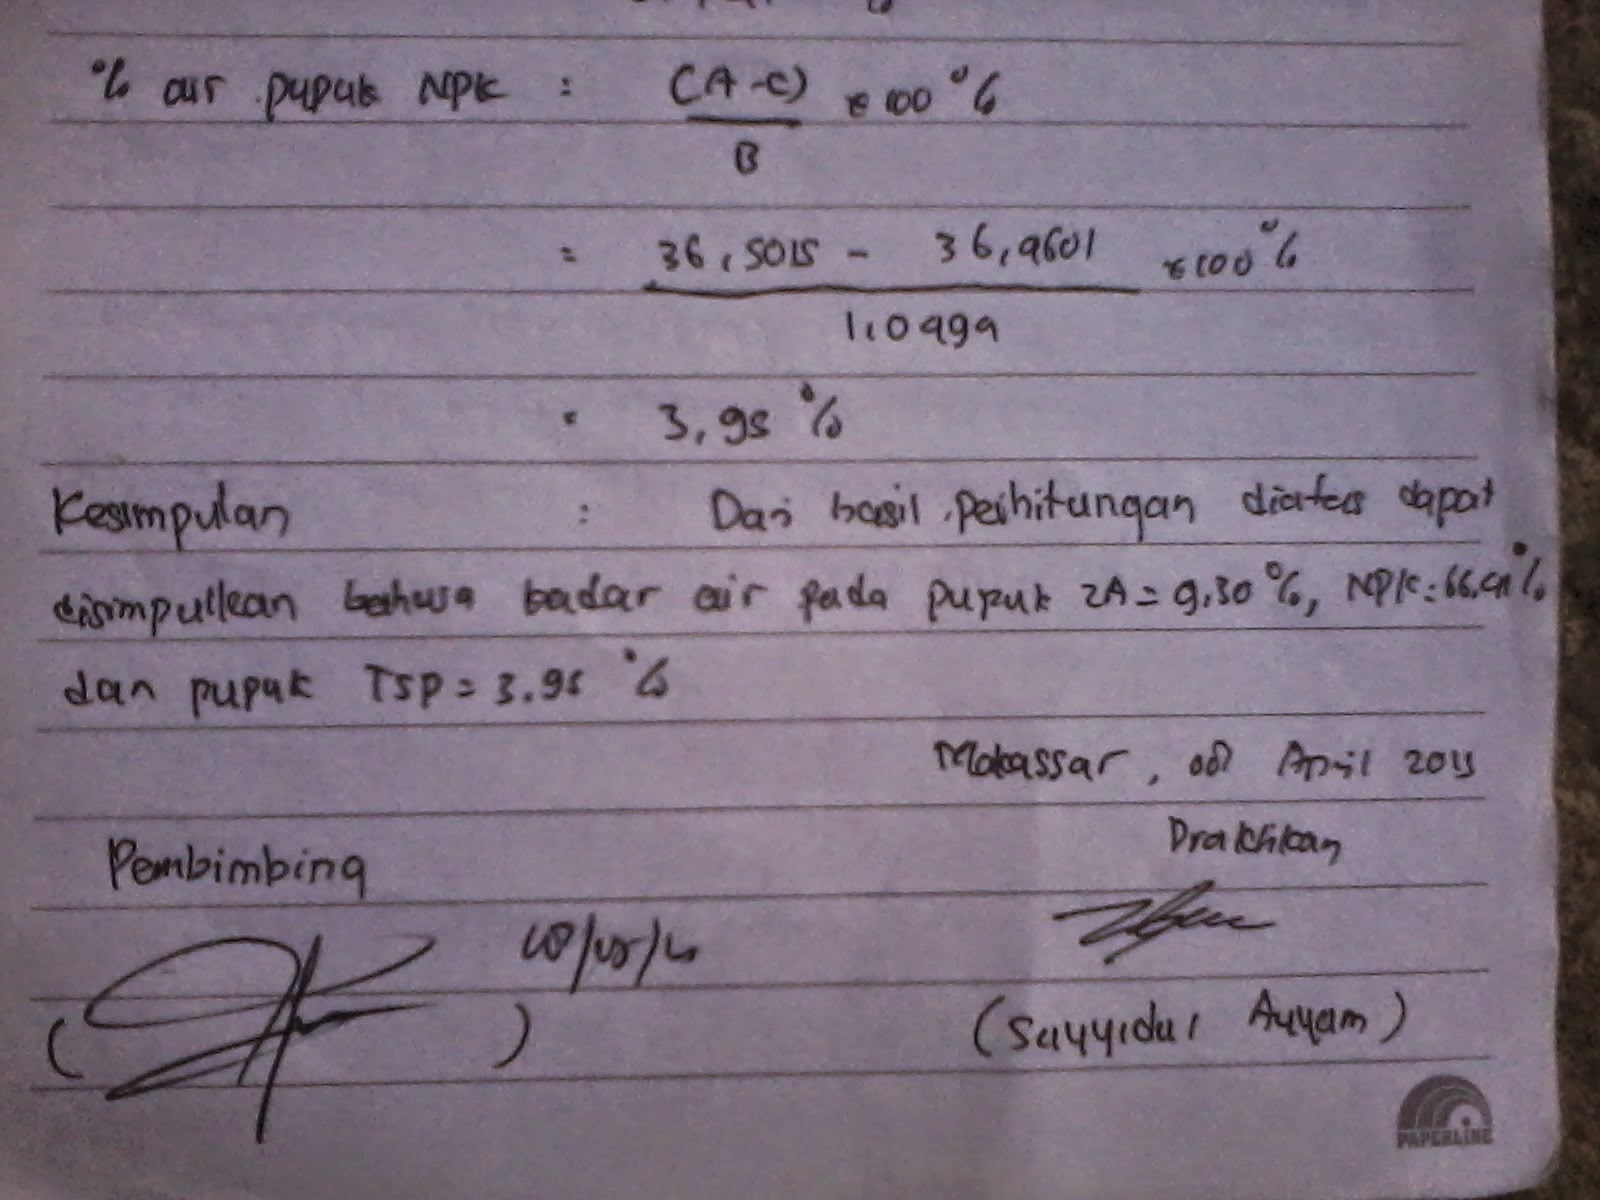 % air pupuk NPK : (A-C) x 100 %
B
= 36,5015 - 36,9601 x 100 %
1,0499
= 3,95 %
Kesimpulan : Dari hasil perhitungan diatas dapat
disimpulkan bahwa kadar air pada pupuk ZA = 9,30 %, NPK = %
dan pupuk TSP = 3.95 %
Makassar, April 2015
Praktikan
Pembimbing
( )
(Sayyidul Ayyam)
PAPERLINE